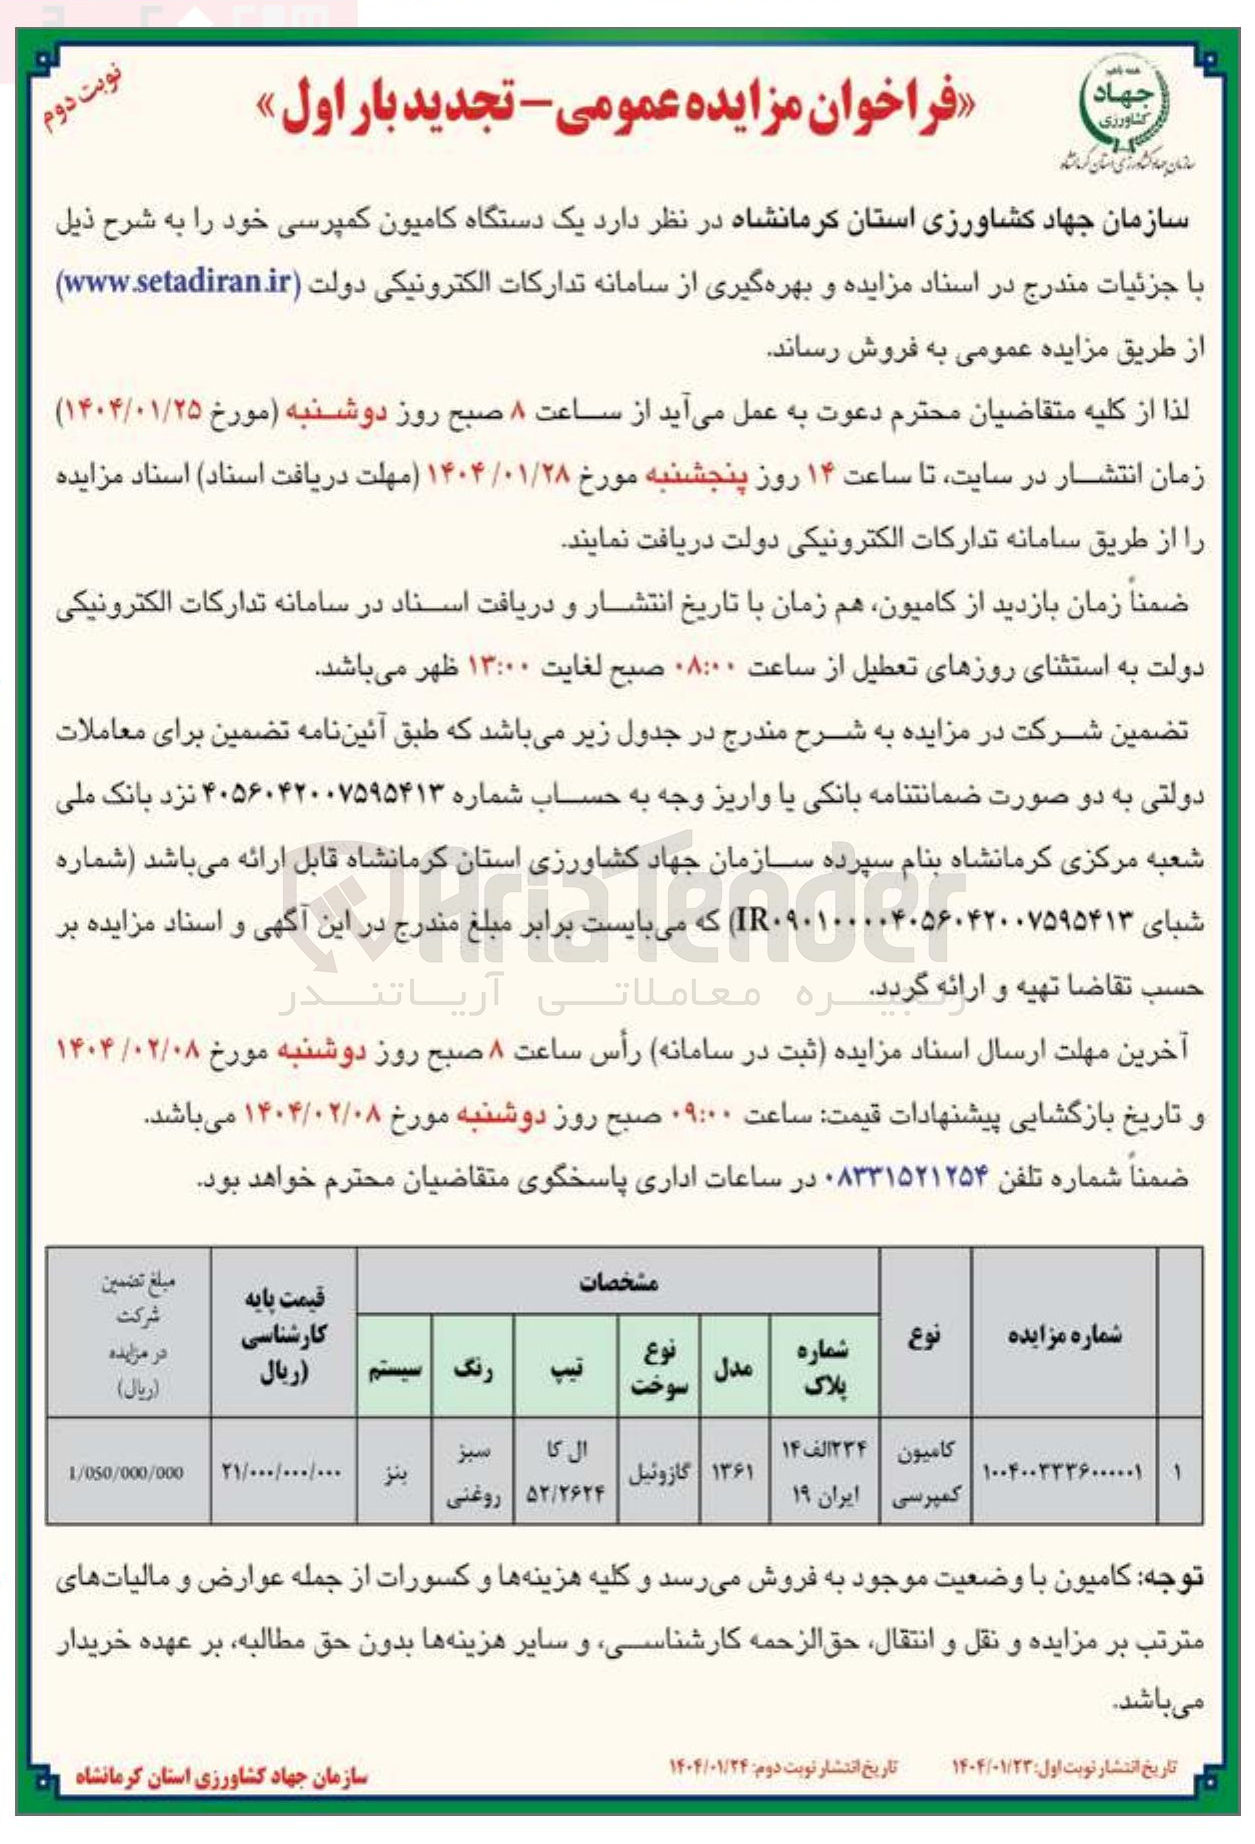 نوبت دوم
«فراخوان مزایده عمومی – تجدید بار اول»
همه باهم
جهاد
کشاورزی
سازمان جهاد کشاورزی استان کرمانشاه
سازمان جهاد کشاورزی استان کرمانشاه در نظر دارد یک دستگاه کامیون کمپرسی خود را به شرح ذیل
با جزئیات مندرج در اسناد مزایده و بهره‌گیری از سامانه تدارکات الکترونیکی دولت (www.setadiran.ir)
از طریق مزایده عمومی به فروش رساند.
لذا از کلیه متقاضیان محترم دعوت به عمل می‌آید از ساعت ۸ صبح روز دوشنبه (مورخ ۱۴۰۴/۰۱/۲۵)
زمان انتشار در سایت، تا ساعت ۱۴ روز پنجشنبه مورخ ۱۴۰۴/۰۱/۲۸ (مهلت دریافت اسناد) اسناد مزایده
را از طریق سامانه تدارکات الکترونیکی دولت دریافت نمایند.
ضمناً زمان بازدید از کامیون، هم زمان با تاریخ انتشار و دریافت اسناد در سامانه تدارکات الکترونیکی
دولت به استثنای روزهای تعطیل از ساعت ۰۸:۰۰ صبح لغایت ۱۳:۰۰ ظهر می‌باشد.
تضمین شرکت در مزایده به شرح مندرج در جدول زیر می‌باشد که طبق آئین‌نامه تضمین برای معاملات
دولتی به دو صورت ضمانتنامه بانکی یا واریز وجه به حساب شماره ۴۰۵۶۰۴۲۰۰۷۵۹۵۴۱۳ نزد بانک ملی
شعبه مرکزی کرمانشاه بنام سپرده سازمان جهاد کشاورزی استان کرمانشاه قابل ارائه می‌باشد (شماره
شبای IR۰۹۰۱۰۰۰۰۴۰۵۶۰۴۲۰۰۷۵۹۵۴۱۳) که می‌بایست برابر مبلغ مندرج در این آگهی و اسناد مزایده بر
حسب تقاضا تهیه و ارائه گردد.
AriaTender
زنجیره معاملاتی آریاتندر
آخرین مهلت ارسال اسناد مزایده (ثبت در سامانه) رأس ساعت ۸ صبح روز دوشنبه مورخ ۱۴۰۴/۰۲/۰۸
و تاریخ بازگشایی پیشنهادات قیمت: ساعت ۰۹:۰۰ صبح روز دوشنبه مورخ ۱۴۰۴/۰۲/۰۸ می‌باشد.
ضمناً شماره تلفن ۰۸۳۳۱۵۲۱۲۵۴ در ساعات اداری پاسخگوی متقاضیان محترم خواهد بود.
شماره مزایده نوع مشخصات قیمت پایه کارشناسی (ریال مبلغ تضمین شرکت در مزایده (ریال)
شماره پلاک مدل نوع سوخت تیپ رنگ سیستم
۱ ۱۰۰۴۰۰۳۳۳۶۰۰۰۰۰۱ کامیون کمپرسی ۲۳۴الف۱۴ ایران ۱۹ ۱۳۶۱ گازوئیل ال کا ۵۲/۲۶۲۴ سبز روغنی بنز ۲۱/۰۰۰/۰۰۰/۰۰۰ 1/050/000/000
توجه: کامیون با وضعیت موجود به فروش می‌رسد و کلیه هزینه‌ها و کسورات از جمله عوارض و مالیات‌های
مترتب بر مزایده و نقل و انتقال، حق‌الزحمه کارشناسی، و سایر هزینه‌ها بدون حق مطالبه، بر عهده خریدار
می‌باشد.
تاریخ انتشار نوبت اول: ۱۴۰۴/۰۱/۲۳ تاریخ انتشار نوبت دوم: ۱۴۰۴/۰۱/۲۴ سازمان جهاد کشاورزی استان کرمانشاه